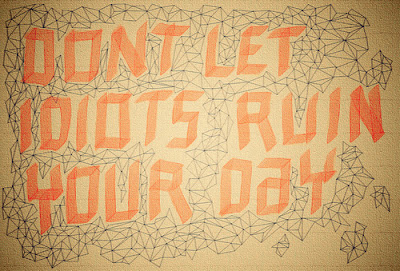 DONT LET
IDIOTS RUIN
YOUR DaY